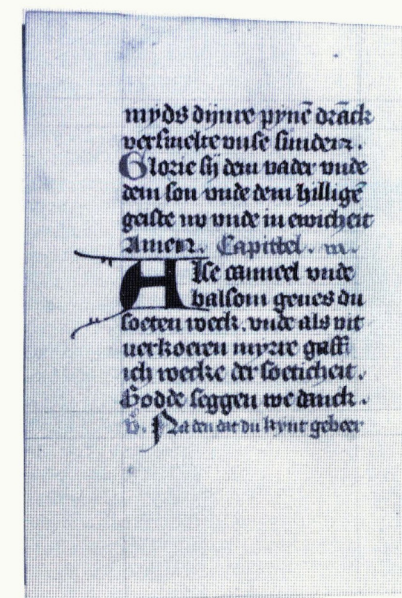 myds dijnre pynē drāck
versmelte vnse sunden.
Glorie sij dem vader vnde
dem son vnde dem hilligē
geiste nv vnde in ewicheit
Amen. Capittel.
Alse canneel vnde
balsom geues du
soeten roeck. vnde als vit
uerkoeren myrre gaff
ich roecke der soeticheit.
Godde seggen we danck.
v. Na den dat du kynt gebeer